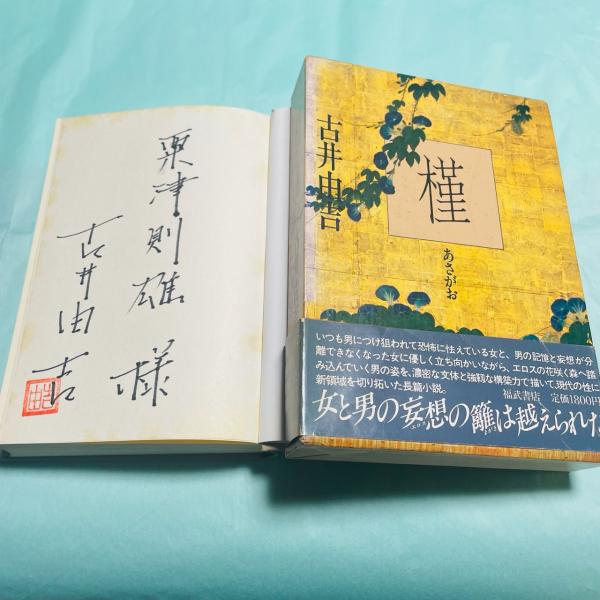 粟津則雄様
古井由吉
古井由吉
槿
あさがお
いつも男につけ狙われて恐怖に怯えている女と、男の記憶と妄想が分
離できなくなった女に優しく立ち向かいながら、エロスの花咲く森へ踏
み込んでいく男の姿を、濃密な文体と強靱な構築力で描いて、現代の性に
新領域を切り拓いた長篇小説。
福武書店 定価1800円
女と男の妄想の籬は越えられた
エロス